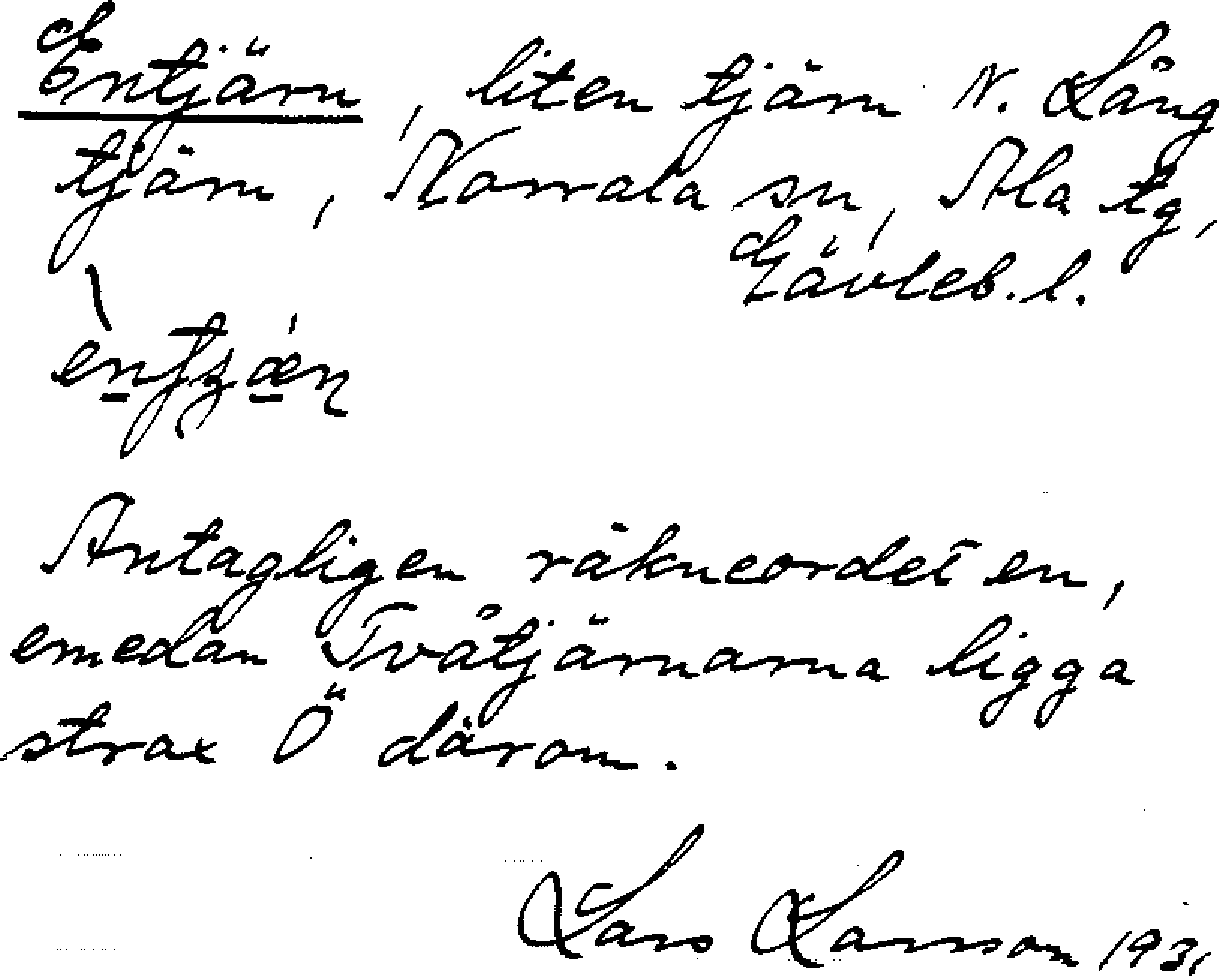 Entjärn, liten tjärn N. Lång
tjärn, Norrala sn, Ala tg,
Gävleb. l.
Antagligen räkneordet en,
emedan Tvåtjärnarna ligga
strax Ö därom.
Lars Larsson 1931